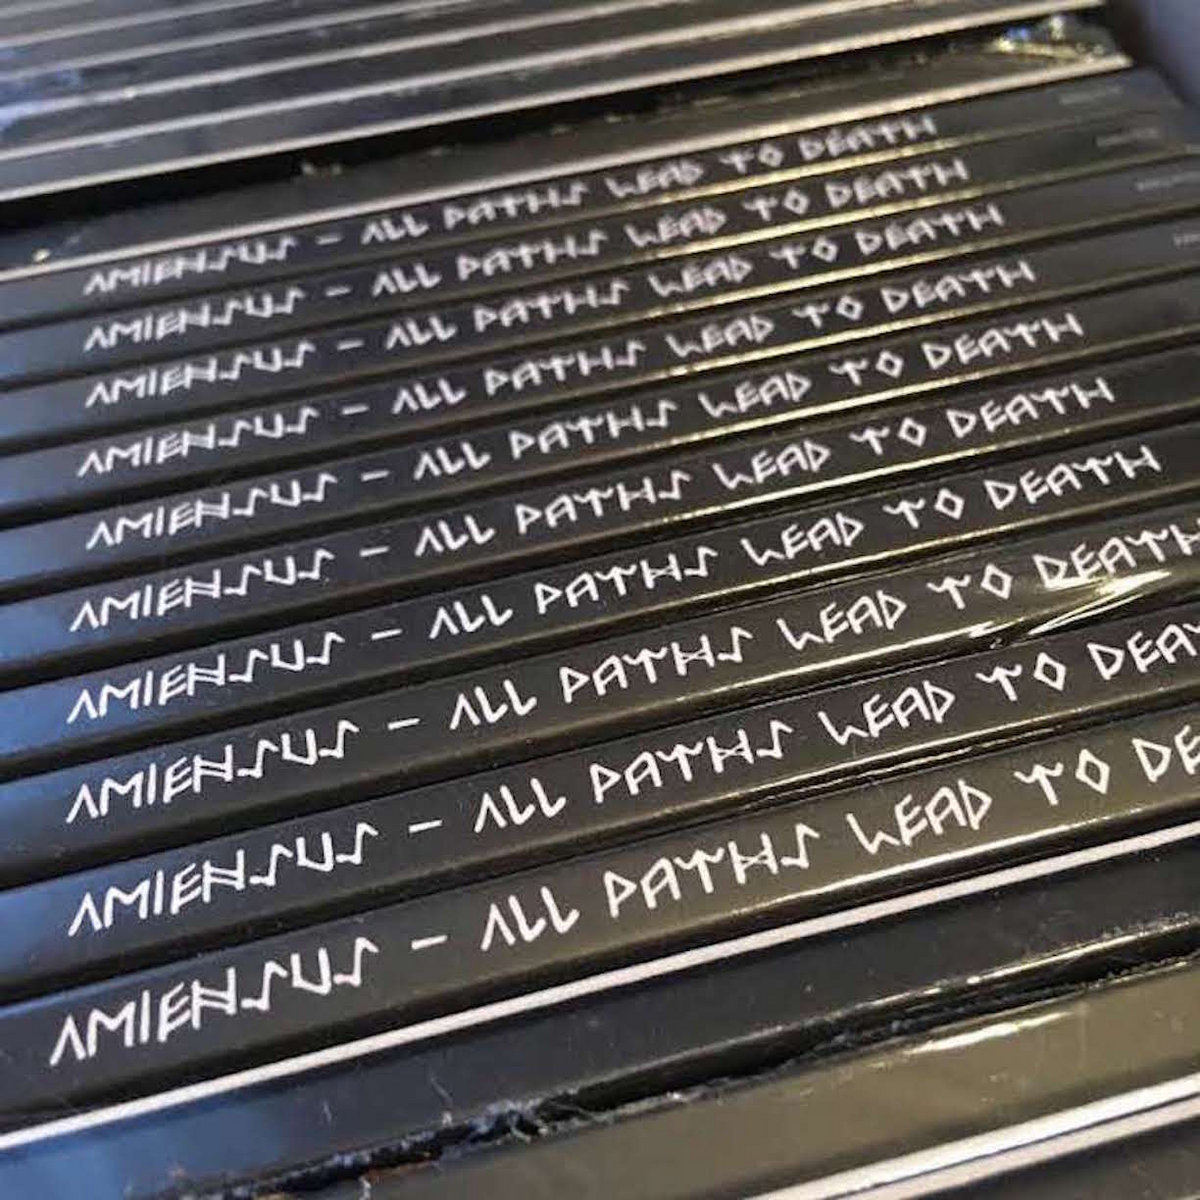 AMIENSUS – ALL PATHS LEAD TO DEATH
AMIENSUS – ALL PATHS LEAD TO DEATH
AMIENSUS – ALL PATHS LEAD TO DEATH
AMIENSUS – ALL PATHS LEAD TO DEATH
AMIENSUS – ALL PATHS LEAD TO DEATH
AMIENSUS – ALL PATHS LEAD TO DEATH
AMIENSUS – ALL PATHS LEAD TO DEATH
AMIENSUS – ALL PATHS LEAD TO DEATH
AMIENSUS – ALL PATHS LEAD TO DEA
AMIENSUS – ALL PATHS LEAD TO DE